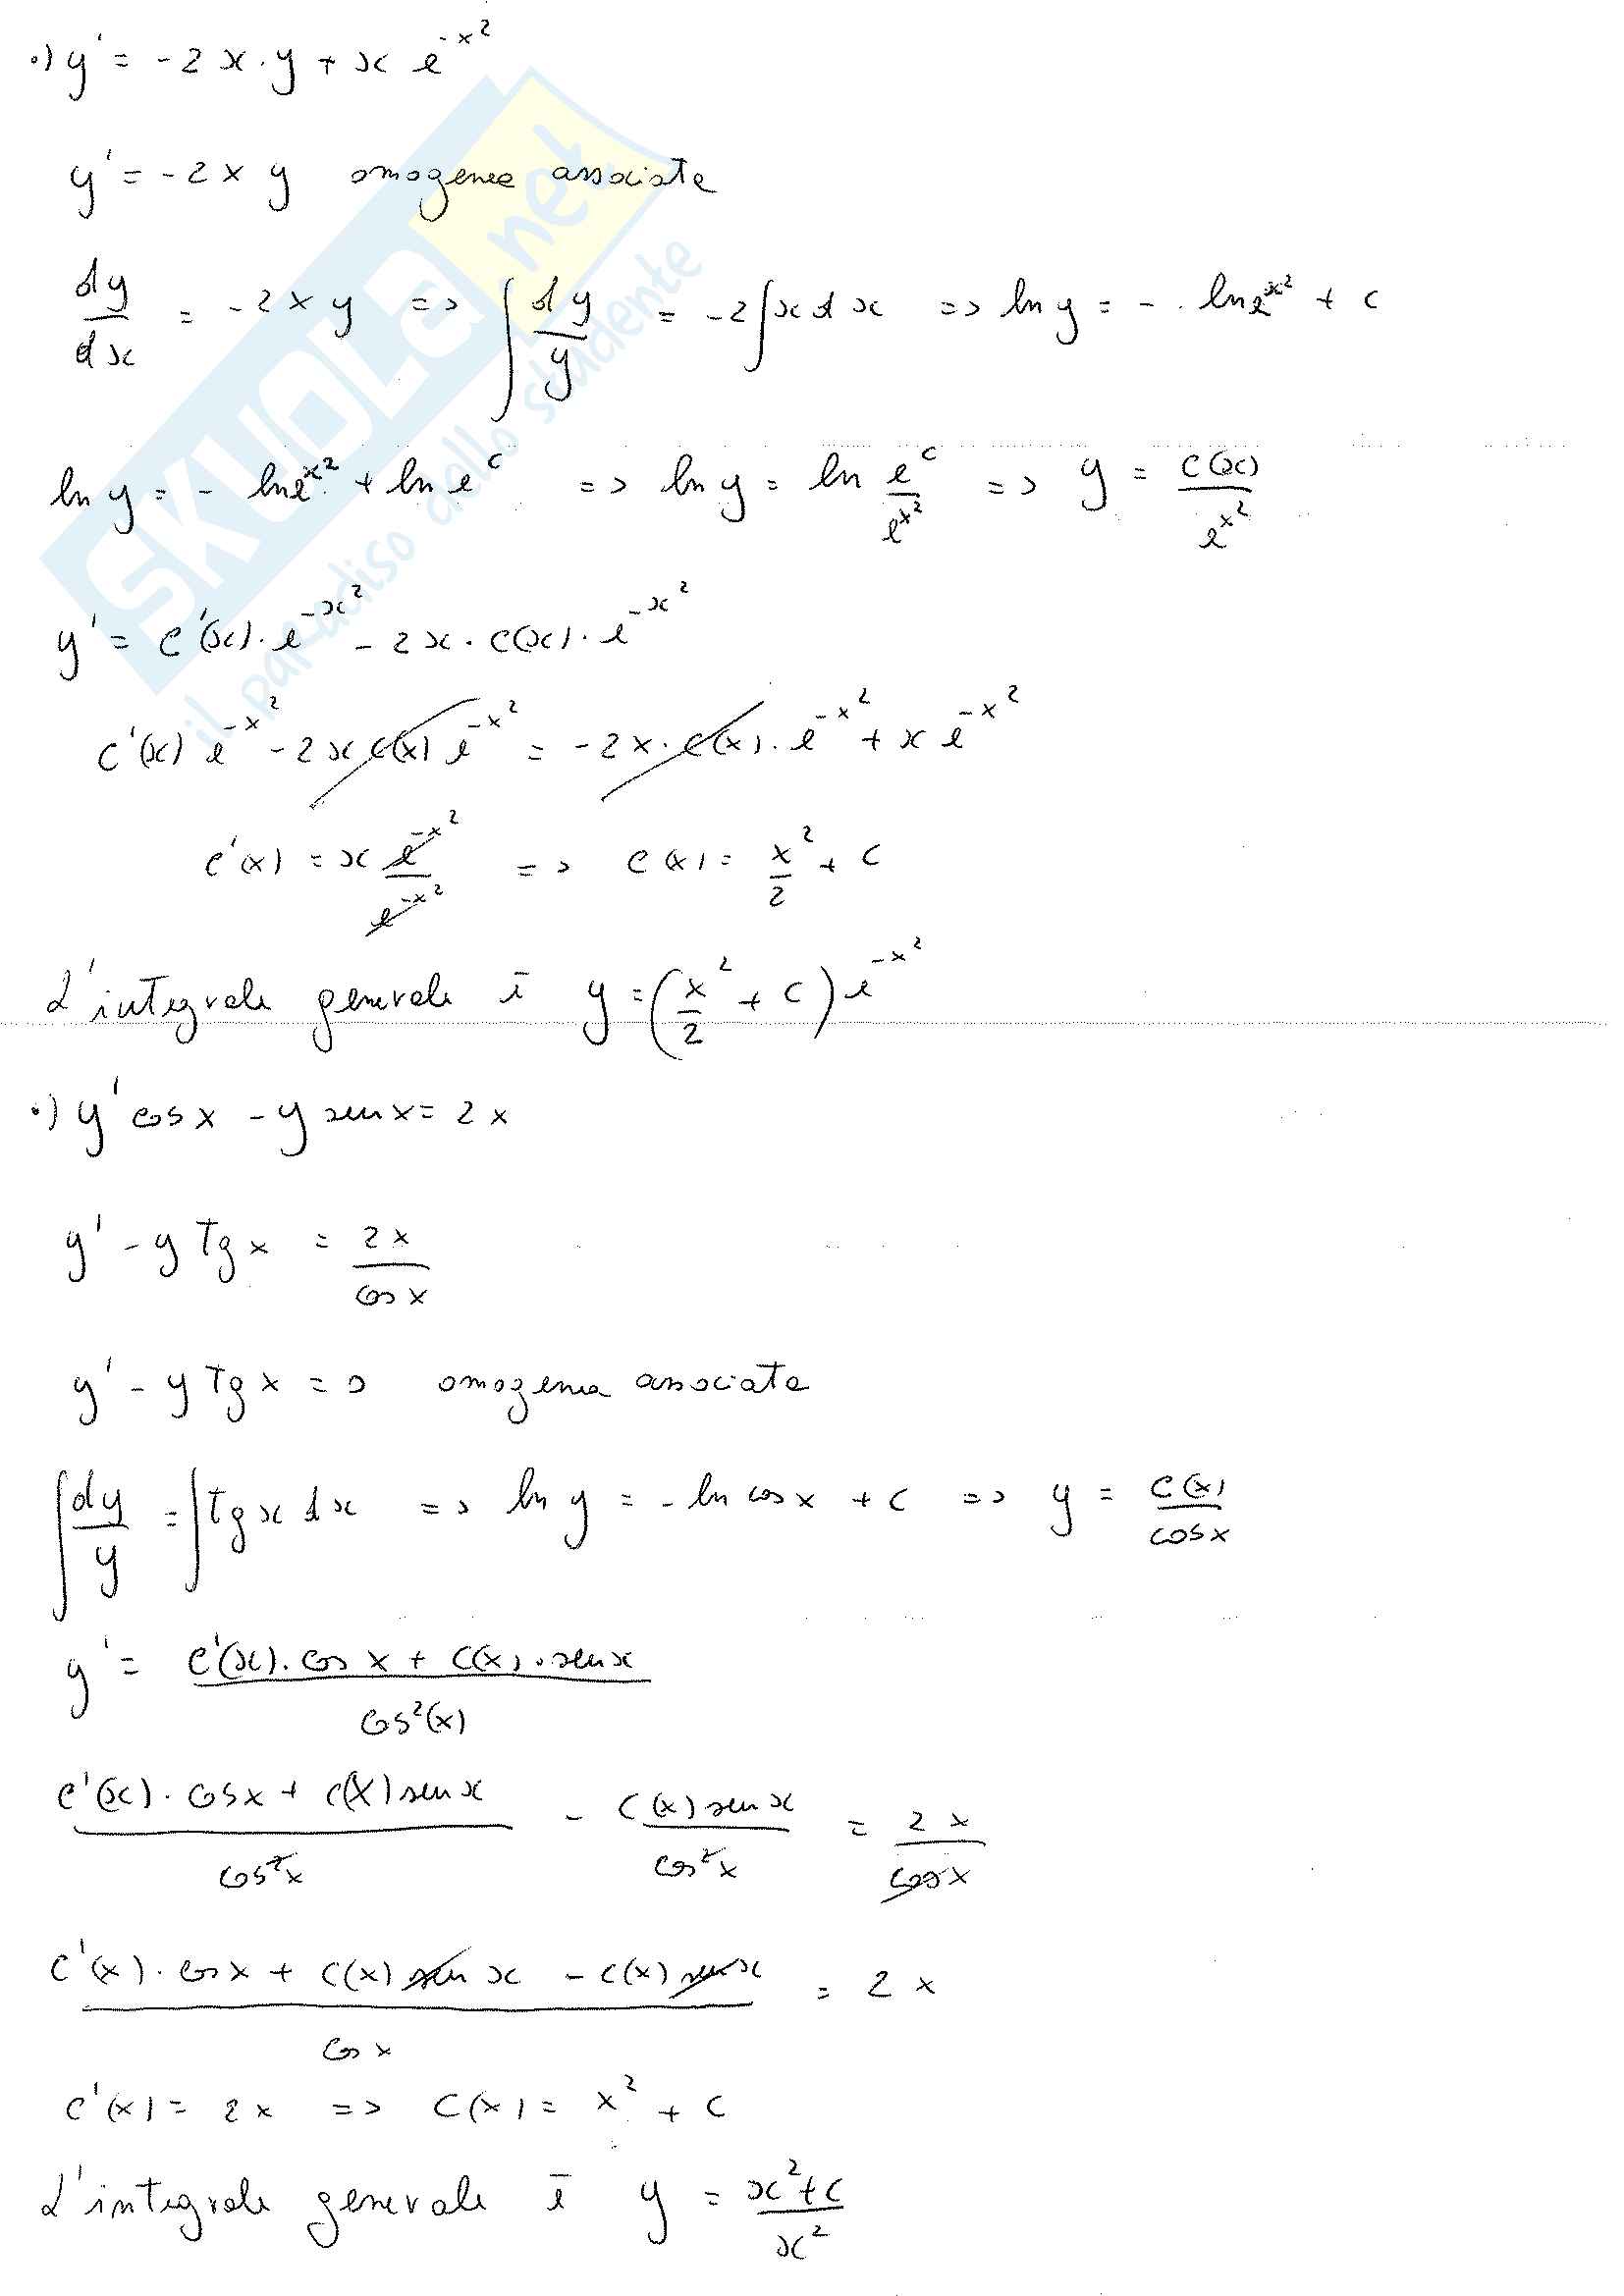 •) y' = -2x·y + x e^{-x²}
y' = -2xy omogenea associata
dy/dx = -2xy => ∫ dy/y = -2∫x dx => ln y = - ln e^{x²} + c
ln y = - ln e^{x²} + ln e^c => ln y = ln e^c/e^{x²} => y = c(x)/e^{x²}
y' = c'(x)·e^{-x²} - 2x·c(x)·e^{-x²}
c'(x) e^{-x²} - 2x c(x) e^{-x²} = -2x·c(x)·e^{-x²} + x e^{-x²}
c'(x) = x e^{-x²}/e^{-x²} => c(x) = x²/2 + c
L'integrale generale è y = (x²/2 + c) e^{-x²}
•) y' cos x - y sen x = 2x
y' - y Tg x = 2x/cos x
y' - y Tg x = 0 omogenea associata
∫ dy/y = ∫ Tg x dx => ln y = - ln cos x + c => y = c(x)/cos x
y' = (c'(x)·cos x + c(x)·sen x)/cos²(x)
(c'(x)·cos x + c(x) sen x)/cos²x - c(x) sen x/cos²x = 2x/cos x
(c'(x)·cos x + c(x) sen x - c(x) sen x)/cos x = 2x
c'(x) = 2x => c(x) = x² + c
L'integrale generale è y = (x²+c)/x²
SKUOLA.net
il paradiso dello studente